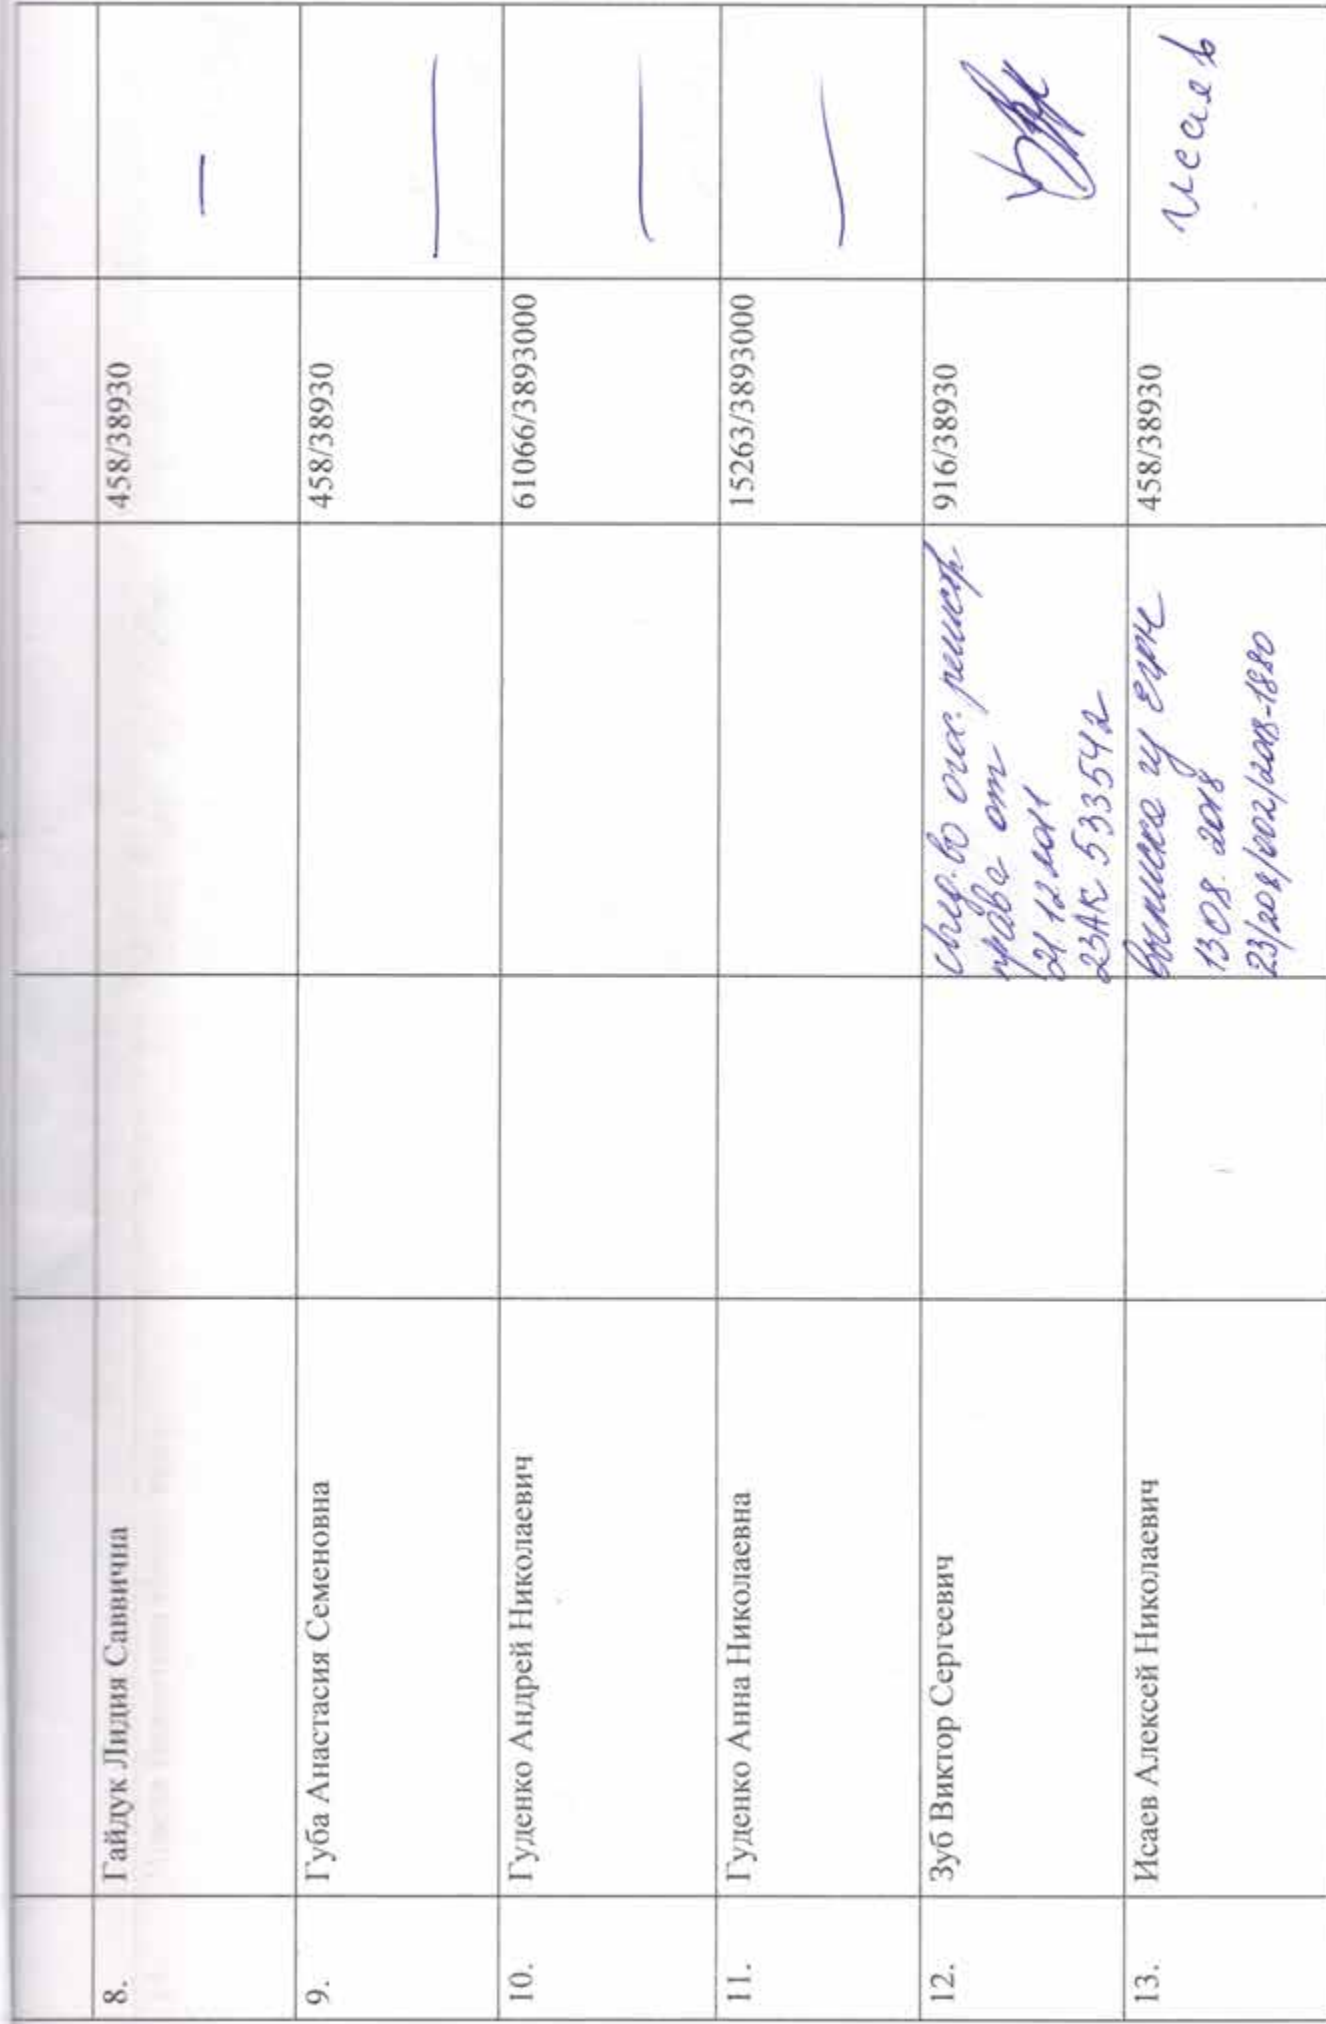 8. Гайдук Лидия Саввична 458/38930 —
9. Губа Анастасия Семеновна 458/38930 —
10. Гуденко Андрей Николаевич 61066/3893000 —
11. Гуденко Анна Николаевна 15263/3893000 —
12. Зуб Виктор Сергеевич
свид-во о гос. регистр
права от
21 12 2011
23АК 533542
916/38930
13. Исаев Алексей Николаевич
выписка из ЕГРН
13.08. 2018
458/38930
Исаев